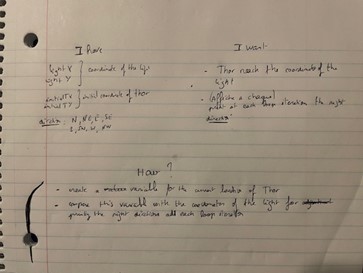 I have
I want
light X
light Y
} coordinate of the light
initial TX
initial TY
} initial coordinate of thor
direction: N, NE, E, SE
S, SW, W, NW
- Thor reach the coordinate of the
light
- (affiche a chaque)
print at each loop iteration the right
direction.
How ?
- create a variable for the current location of Thor
- compare this variable with the coordinate of the light for
the right direction each loop iteration